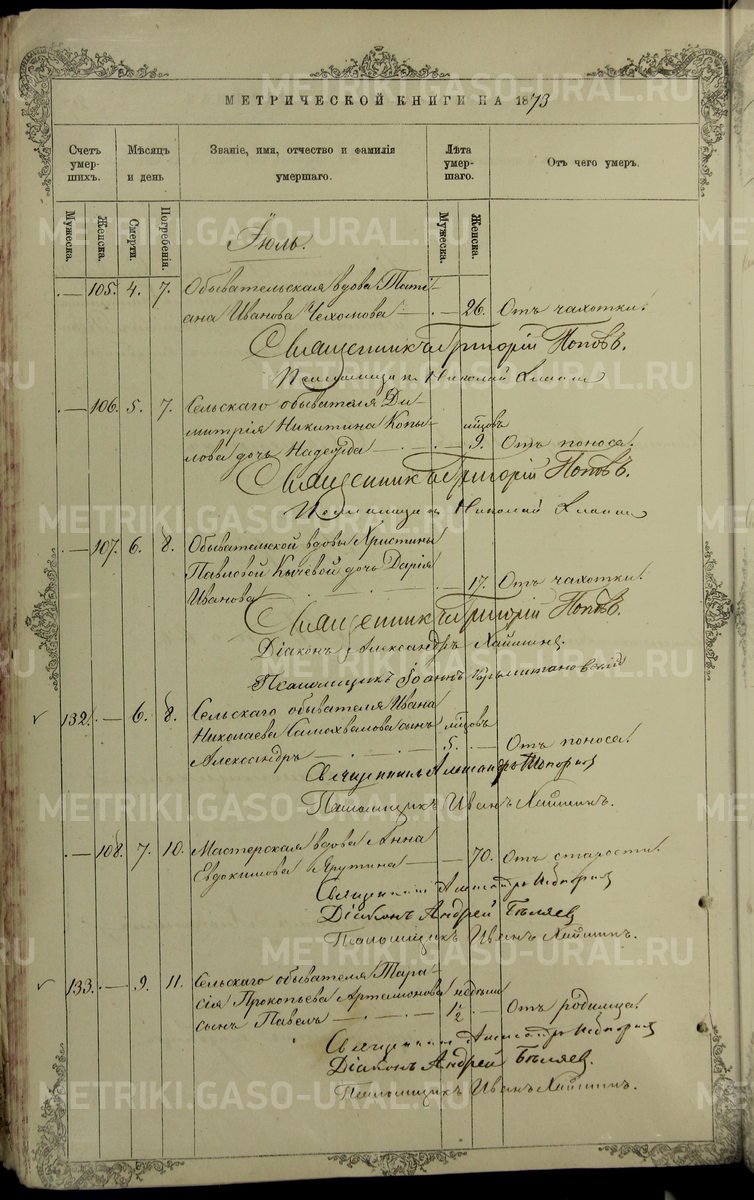 МЕТРИЧЕСКОЙ КНИГИ НА 1873
Счетъ умер- шихъ.
Мѣсяцъ и день
Званіе, имя, отчество и фамилія умершаго.
Лѣта умер- шаго.
Отъ чего умеръ.
Мужеска.
Женска.
Смерти.
Погребенія.
Мужеска.
Женска.
Іюль.
— 105. 4. 7. Обывательская вдова Тати-
ана Иванова — 26. Отъ чахотки.
Священникъ Григорій Поповъ.
Николай
— 106. 5. 7. Сельскаго обывателя Ди-
митрія Никитина Копы- мѣсяцовъ
лова дочь Надежда — 9. Отъ поноса.
Священникъ Григорій Поповъ.
Николай
— 107. 6. 8. Обывательской вдовы Христины
Павловой Кычевой дочь Дарія
Иванова — 17. Отъ чахотки.
Священникъ Григорій Поповъ.
Діаконъ Александръ Хаймин
Псаломщикъ Іоаннъ
132. — 6. 8. Сельскаго обывателя Ивана
Николаева Самохвалова сынъ мѣсяцовъ
Александръ — 5. — Отъ поноса.
Священникъ Александръ
Псаломщикъ Иванъ Хайминъ.
— 108. 7. 10. Мастерская вдова Анна
Евдокимова Ярутина — 70. Отъ старости.
Священникъ Александръ
Діаконъ Андрей Бѣляев
Псаломщикъ Иванъ Хайминъ.
133. — 9. 11. Сельскаго обывателя Тара-
сія Прокопьева Артемонова недѣли
сынъ Павелъ — 1/2 — Отъ родимца.
Священникъ Александръ
Діаконъ Андрей Бѣляев.
Псаломщикъ Иванъ Хайминъ.
METRIKI.GASO-URAL.RU